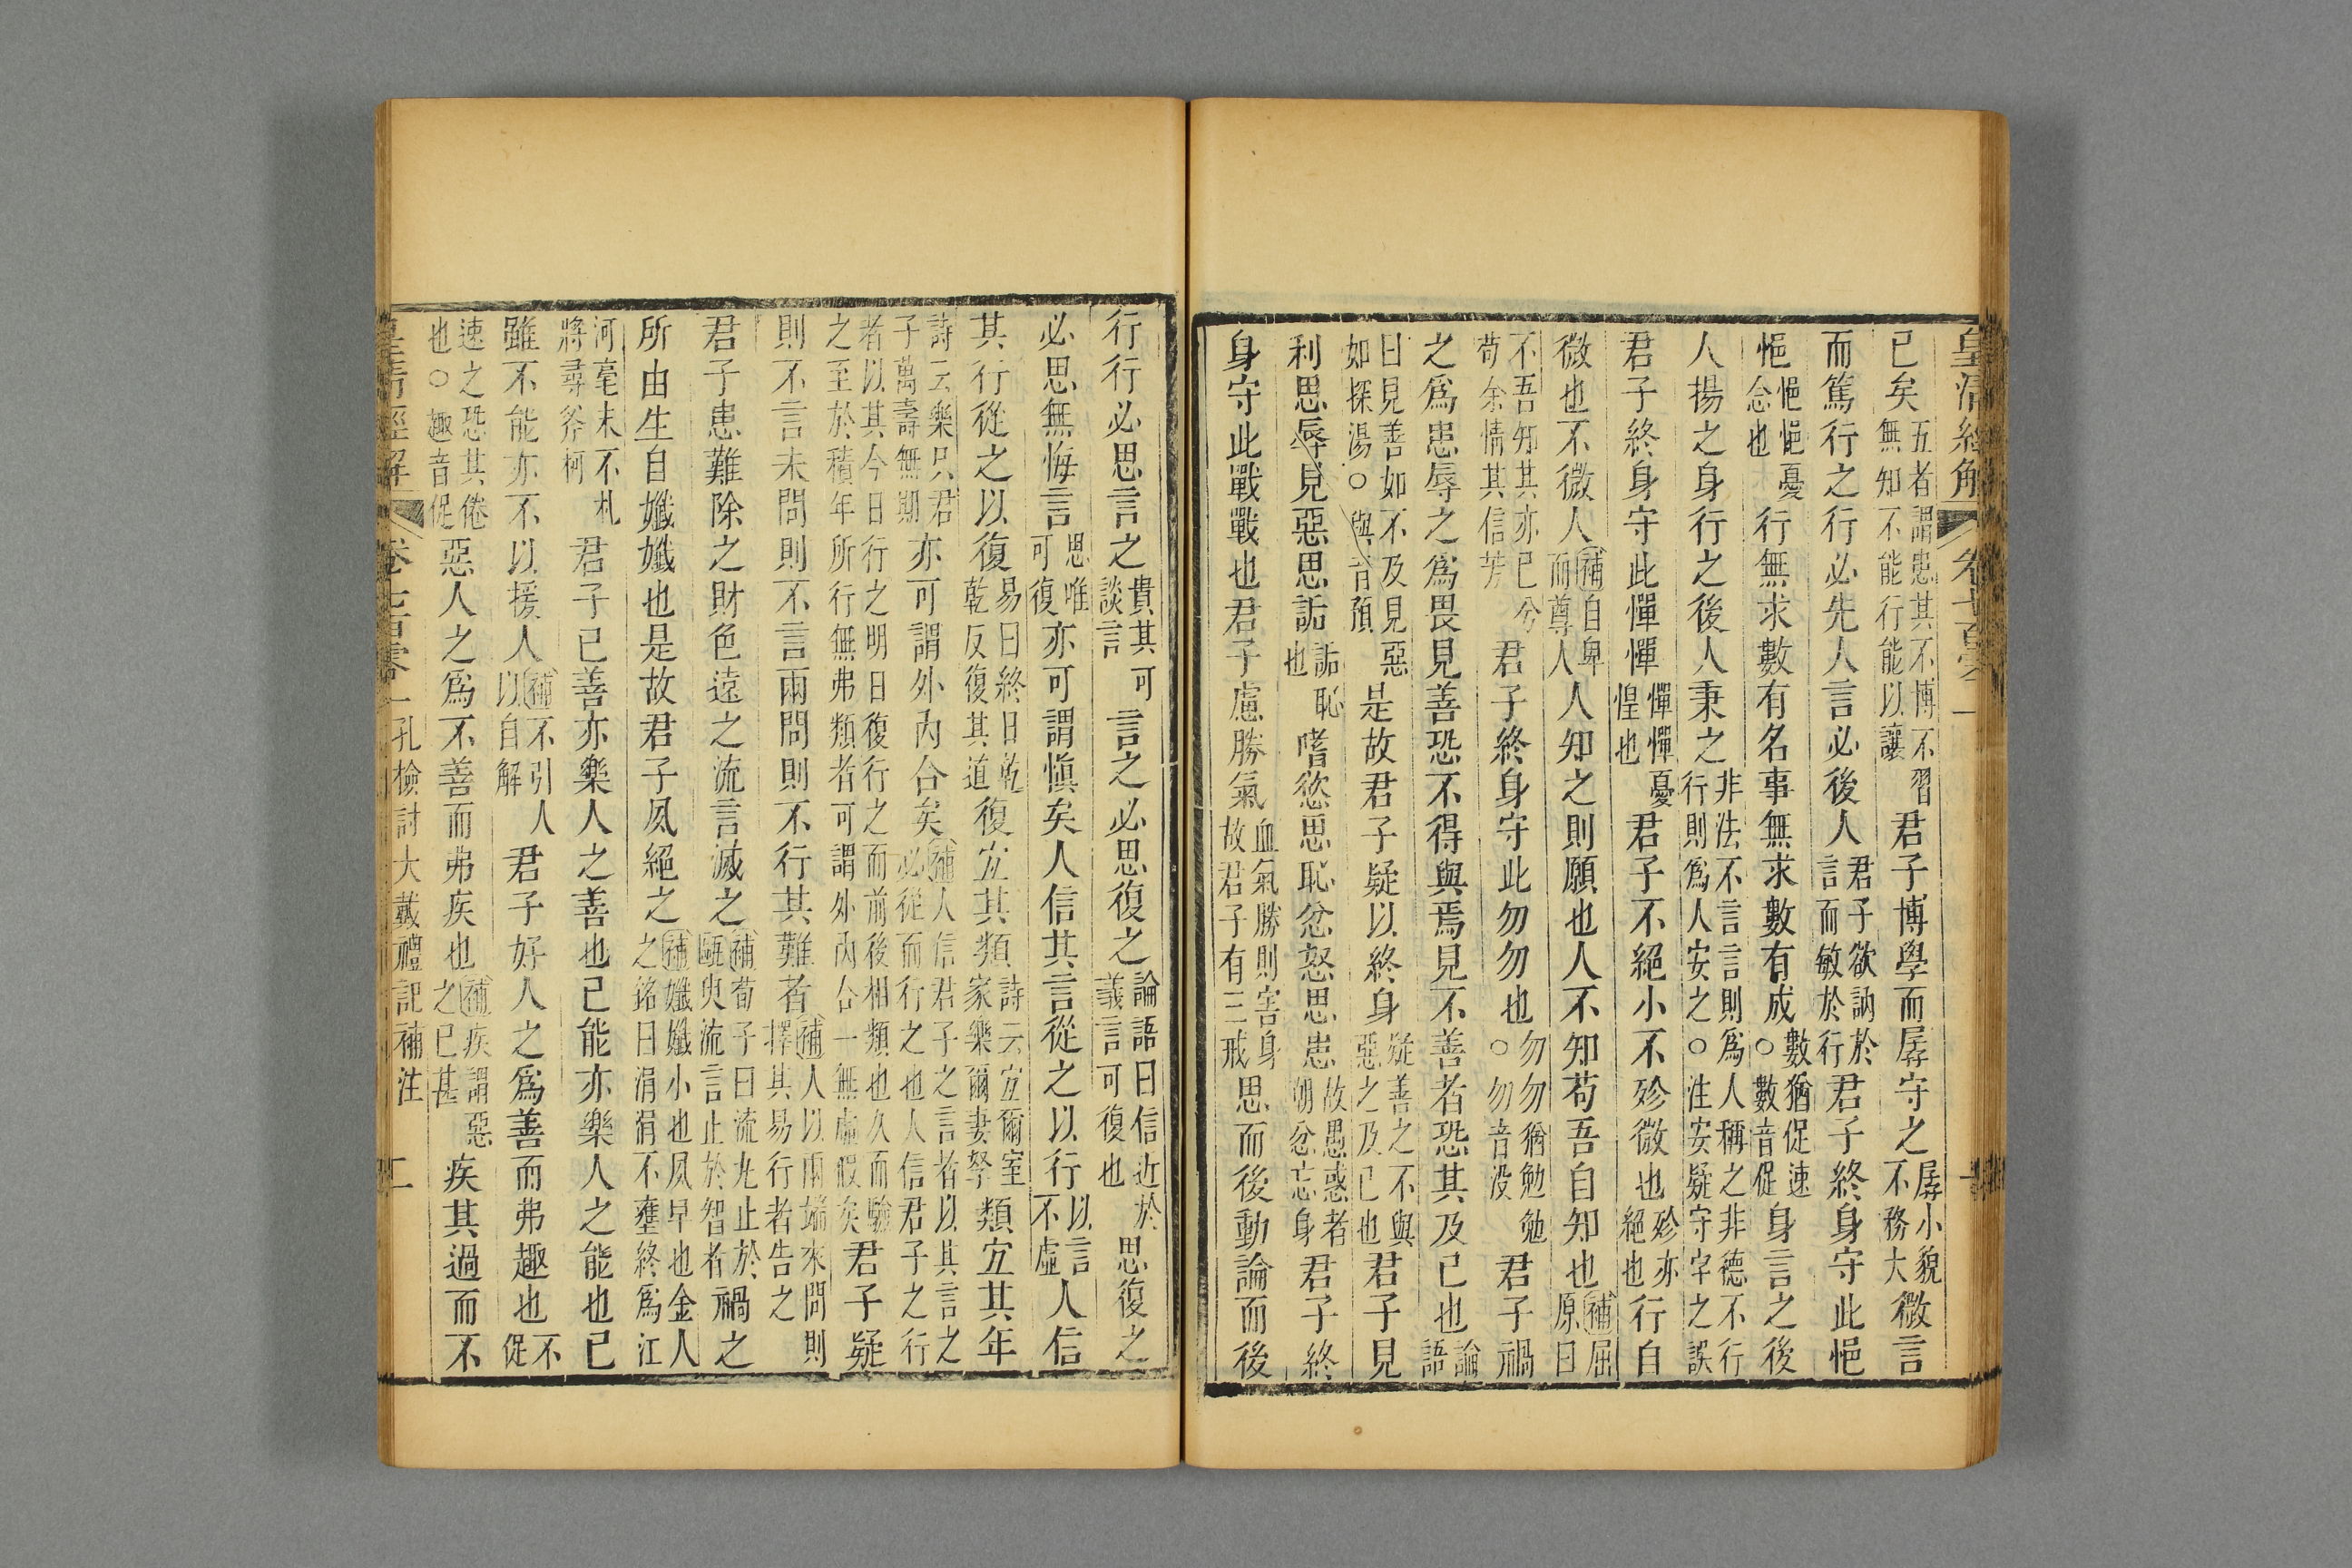 皇清經解 卷七百零一 一
已矣五者謂患其不博不習無知不能行能以讓君子博學而孱守之孱小貌不務大微言
而篤行之行必先人言必後人君子欲訥於言而敏於行君子終身守此悒
悒悒悒憂念也行無求數有名事無求數有成數猶促速○數音促身言之後
人揚之身行之後人秉之非法不言言則爲人稱之非德不行行則爲人安之○注安疑守字之誤
君子終身守此憚憚憚憚憂惶也君子不絕小不殄微也殄亦絕也行自
微也不微人補自卑而尊人人知之則願也人不知苟吾自知也補屈原曰
不吾知其亦已兮苟余情其信芳君子終身守此勿勿也勿勿猶勉勉○勿音没君子禍
之爲患辱之爲畏見善恐不得與焉見不善者恐其及已也論語
曰見善如不及見惡如探湯○與音預是故君子疑以終身疑善之不與惡之及已也君子見
利思辱見惡思詬詬恥也嗜慾思恥忿怒思患故愚惑者朝忿忘身君子終
身守此戰戰也君子慮勝氣血氣勝則害身故君子有三戒思而後動論而後
行行必思言之貴其可談言言之必思復之論語曰信近於義言可復也思復之
必思無悔言思唯可復亦可謂愼矣人信其言從之以行以言不虛人信
其行從之以復易曰終日乾乾反復其道復宜其類詩云宜爾室家樂爾妻孥類宜其年
詩云樂只君子萬壽無期亦可謂外內合矣補人信君子之言者以其言之必從而行之也人信君子之行
者以其今日行之明日復行之而前後相類也久而驗之至於積年所行無弗類者可謂外內合一無虛假矣君子疑
則不言未問則不言兩問則不行其難者補人以兩端來問則擇其易行者告之
君子患難除之財色遠之流言滅之補荀子曰流丸止於甌臾流言止於智者禍之
所由生自孅孅也是故君子夙絕之補孅孅小也夙早也金人之銘曰涓涓不壅終爲江
河毫末不札將尋斧柯君子已善亦樂人之善也已能亦樂人之能也已
雖不能亦不以援人補不引人以自解君子好人之爲善而弗趣也不促
速之恐其倦也○趣音促惡人之爲不善而弗疾也補疾謂惡之已甚疾其過而不
皇清經解 卷七百零一 孔檢討大戴禮記補注 二